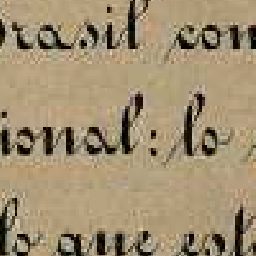 Brasil con
ional: lo
lo que est